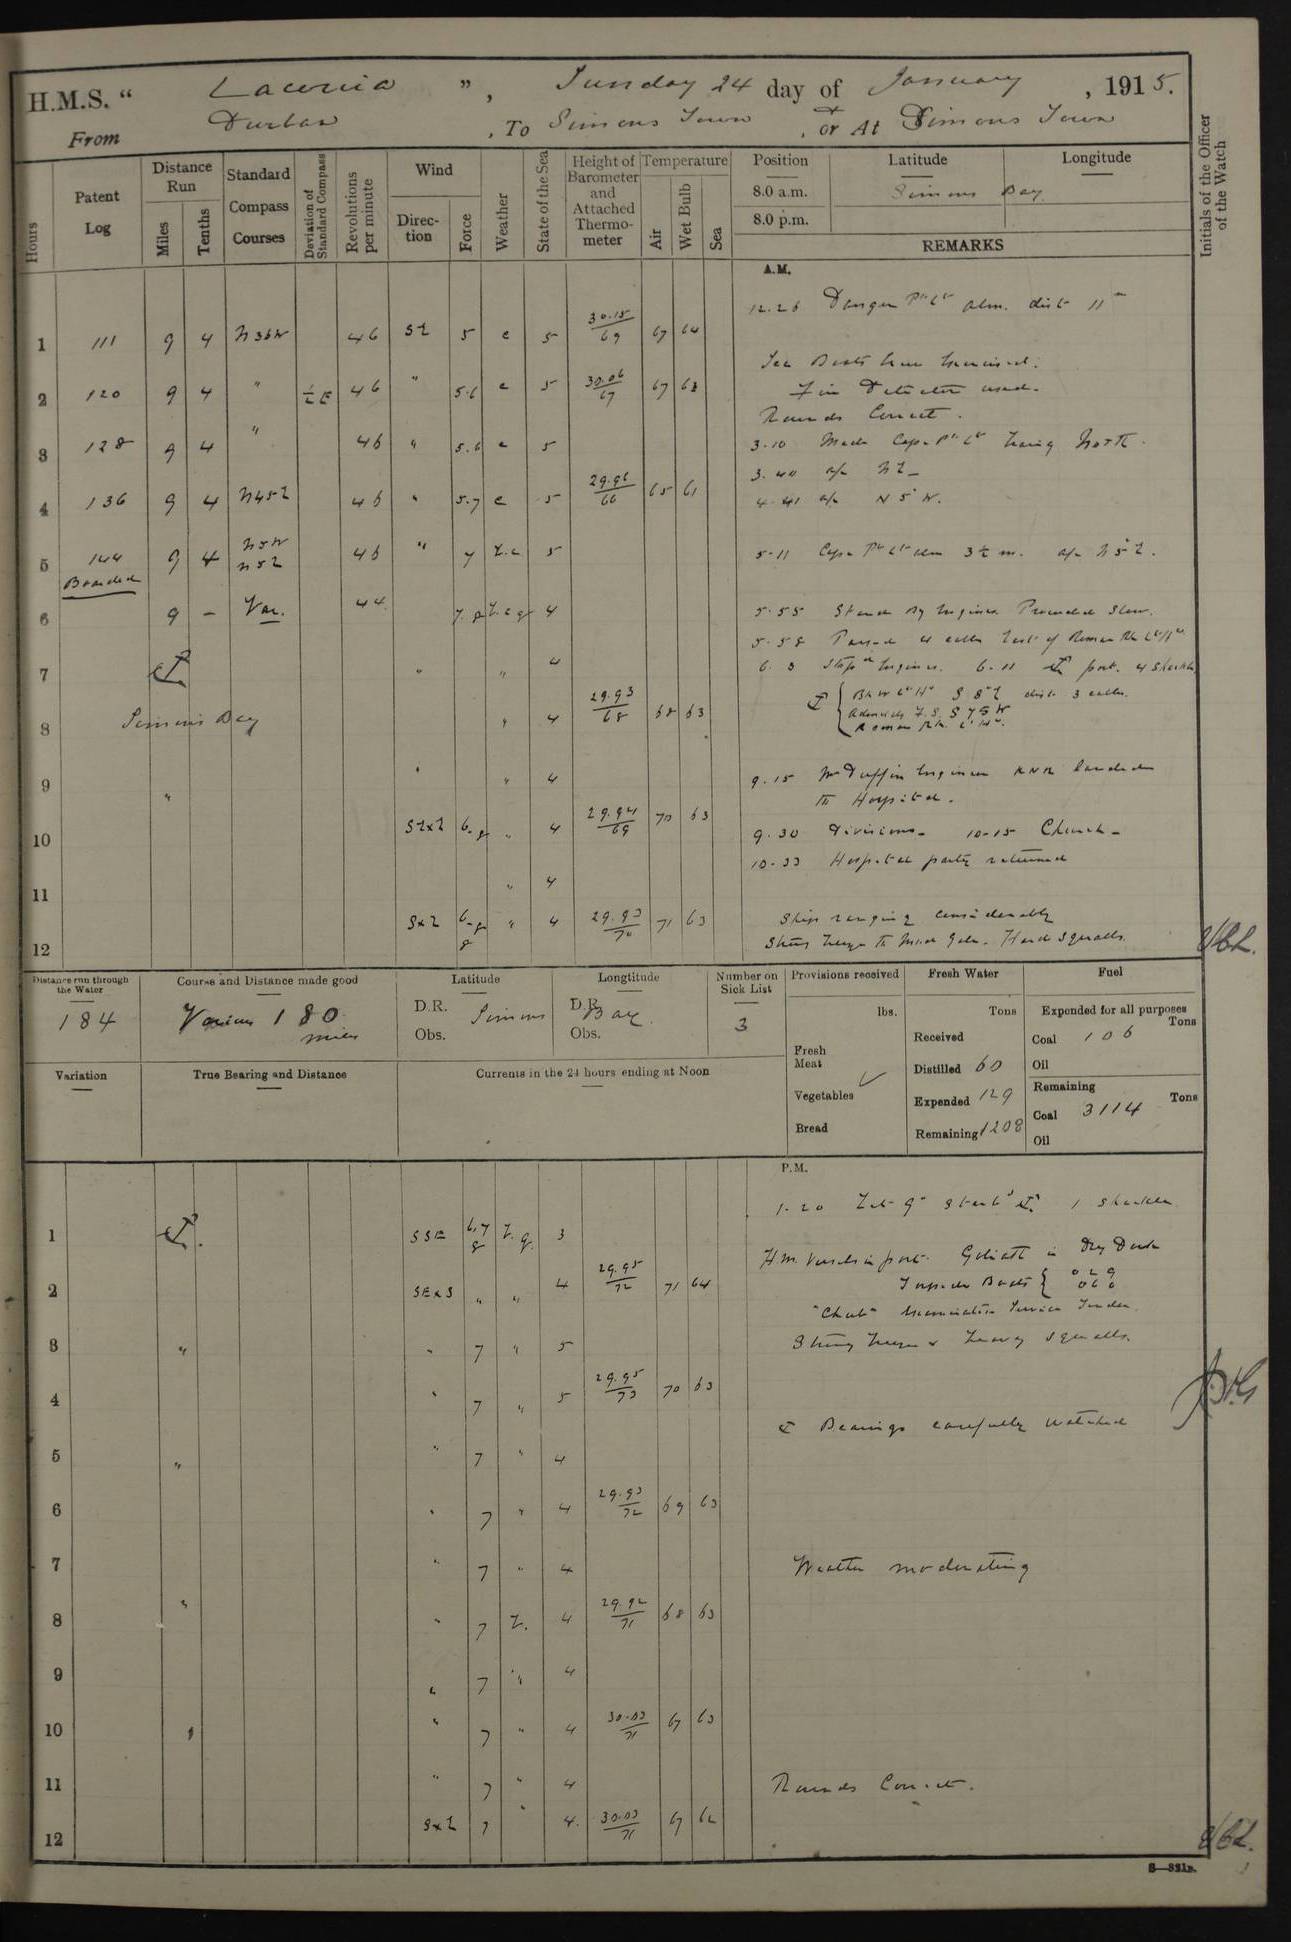 H.M.S. " Laconia ", Sunday 24 day of January, 1915.
From Durban, To Simons Town, or At Simons Town
Hours
Patent Log
Distance Run
Miles
Tenths
Standard Compass Courses
Deviation of Standard Compass
Revolutions per minute
Wind
Direction
Force
Weather
State of the Sea
Height of Barometer and Attached Thermometer
Temperature
Air
Wet Bulb
Sea
Position
Latitude
Longitude
8.0 a.m. Simons Bay
8.0 p.m.
REMARKS
Initials of the Officer of the Watch
A.M.
12.26 Danger Pt Lt abm. dist 11 m
1 111 9 4 N36W 46 SE 5 c 5 30.15/69 67 64
Sea Boats crew exercised.
2 120 9 4 " 46 " 5.6 c 5 30.06/67 67 63
Fire Detector used.
Rounds Correct.
3 128 9 4 " 46 " 5.6 c 5
3.10 Made Cape Pt Lt bearing North.
3.40 a/c NE
4 136 9 4 N45E 46 " 5.7 c 5 29.96/66 65 61
4.41 a/c N 5° W.
5 144 9 4 N5W N5E 46 " 7 5
5.11 Cape Pt Lt abm 3½ m. a/c N 5° E.
Boarded
6 9 - Var. 44 4
5.55 Stand By Engines Proceeded Slow.
5.58 Passed 4 cables East of Roman Rk Lt Ho
7 " " 4
6.3 Stopd Engines. 6.11 port. 4 Shackles
8 Simon's Bay " 4 29.93/68 68 63
dist 3 cables.
9 " " 4
9.15 Mr Duffin Engineer RNR landed
to Hospital.
10 6-8 " 4 29.94/69 70 63
9.30 Divisions - 10-15 Church -
10-33 Hospital party returned
11 " 4
Ship ranging considerably
12 SxE 6-8 " 4 29.93/70 71 63
Strong breeze to Mod Gale - Hard Squalls.
Distance run through the Water
184
Course and Distance made good
Various 180 miles
Latitude
D.R. Simons
Obs.
Longtitude
D.R. Bay.
Obs.
Number on Sick List
3
Provisions received
lbs.
Fresh Meat
Vegetables
Bread
Fresh Water
Tons
Received
Distilled 60
Expended 129
Remaining 1208
Fuel
Expended for all purposes
Tons
Coal 106
Oil
Remaining
Tons
Coal 3114
Oil
Variation
True Bearing and Distance
Currents in the 24 hours ending at Noon
P.M.
1.20 Let go Starbd 1 Shackle
1 SSE 6,7 3
H.M. Vessels in port. Goliath in Dry Dock
2 SExS " " 4 29.95/72 71 64
Torpedo Boats { 029 060
"Chub" Examination Service Tender.
3 " " 7 " 5
Strong breeze & heavy squalls.
4 " 7 " 5 29.95/73 70 63
Bearings carefully watched
5 " " 7 " 4
6 " 7 " 4 29.93/72 69 63
7 " 7 " 4
Weather moderating
8 " " 7 4 29.92/71 68 63
9 " 7 " 4
10 " 7 " 4 30.03/71 67 63
11 " 7 " 4
Rounds Correct.
12 SxE 7 4. 30.03/71 67 62
S—321B.